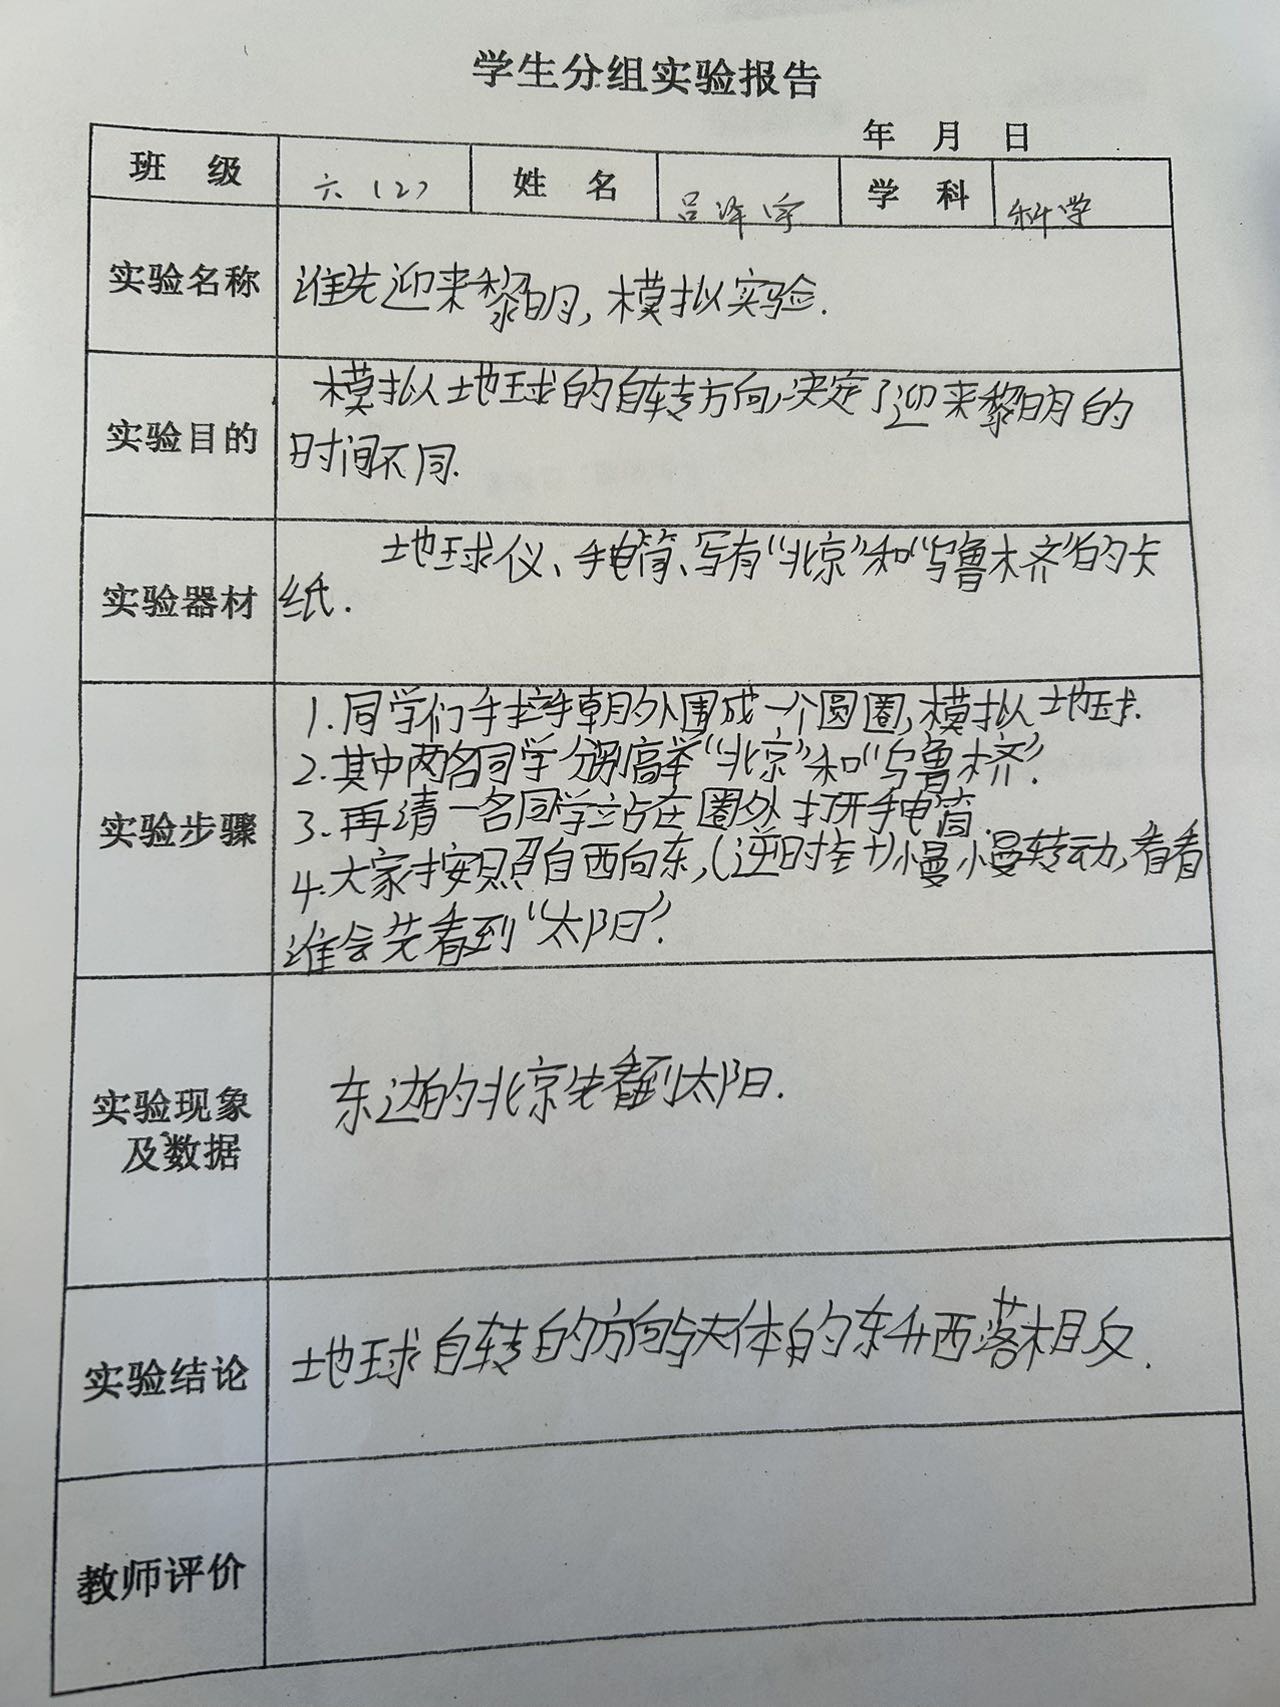 学生分组实验报告
年 月 日
班 级 六（2） 姓 名 吕泽宇 学 科 科学
实验名称 谁先迎来黎明,模拟实验.
实验目的 模拟地球的自转方向,决定了迎来黎明的
时间不同.
实验器材 地球仪、手电筒、写有“北京”和“乌鲁木齐”的卡
纸.
实验步骤
1.同学们手拉手朝外围成一个圆圈,模拟地球.
2.其中两名同学分别高举“北京”和“乌鲁木齐”.
3.再请一名同学站在圈外打开手电筒.
4.大家按照自西向东,(逆时针)慢慢转动,看看
谁会先看到“太阳”.
实验现象
及数据
东边的北京先看到太阳.
实验结论 地球自转的方向与天体的东升西落相反.
教师评价